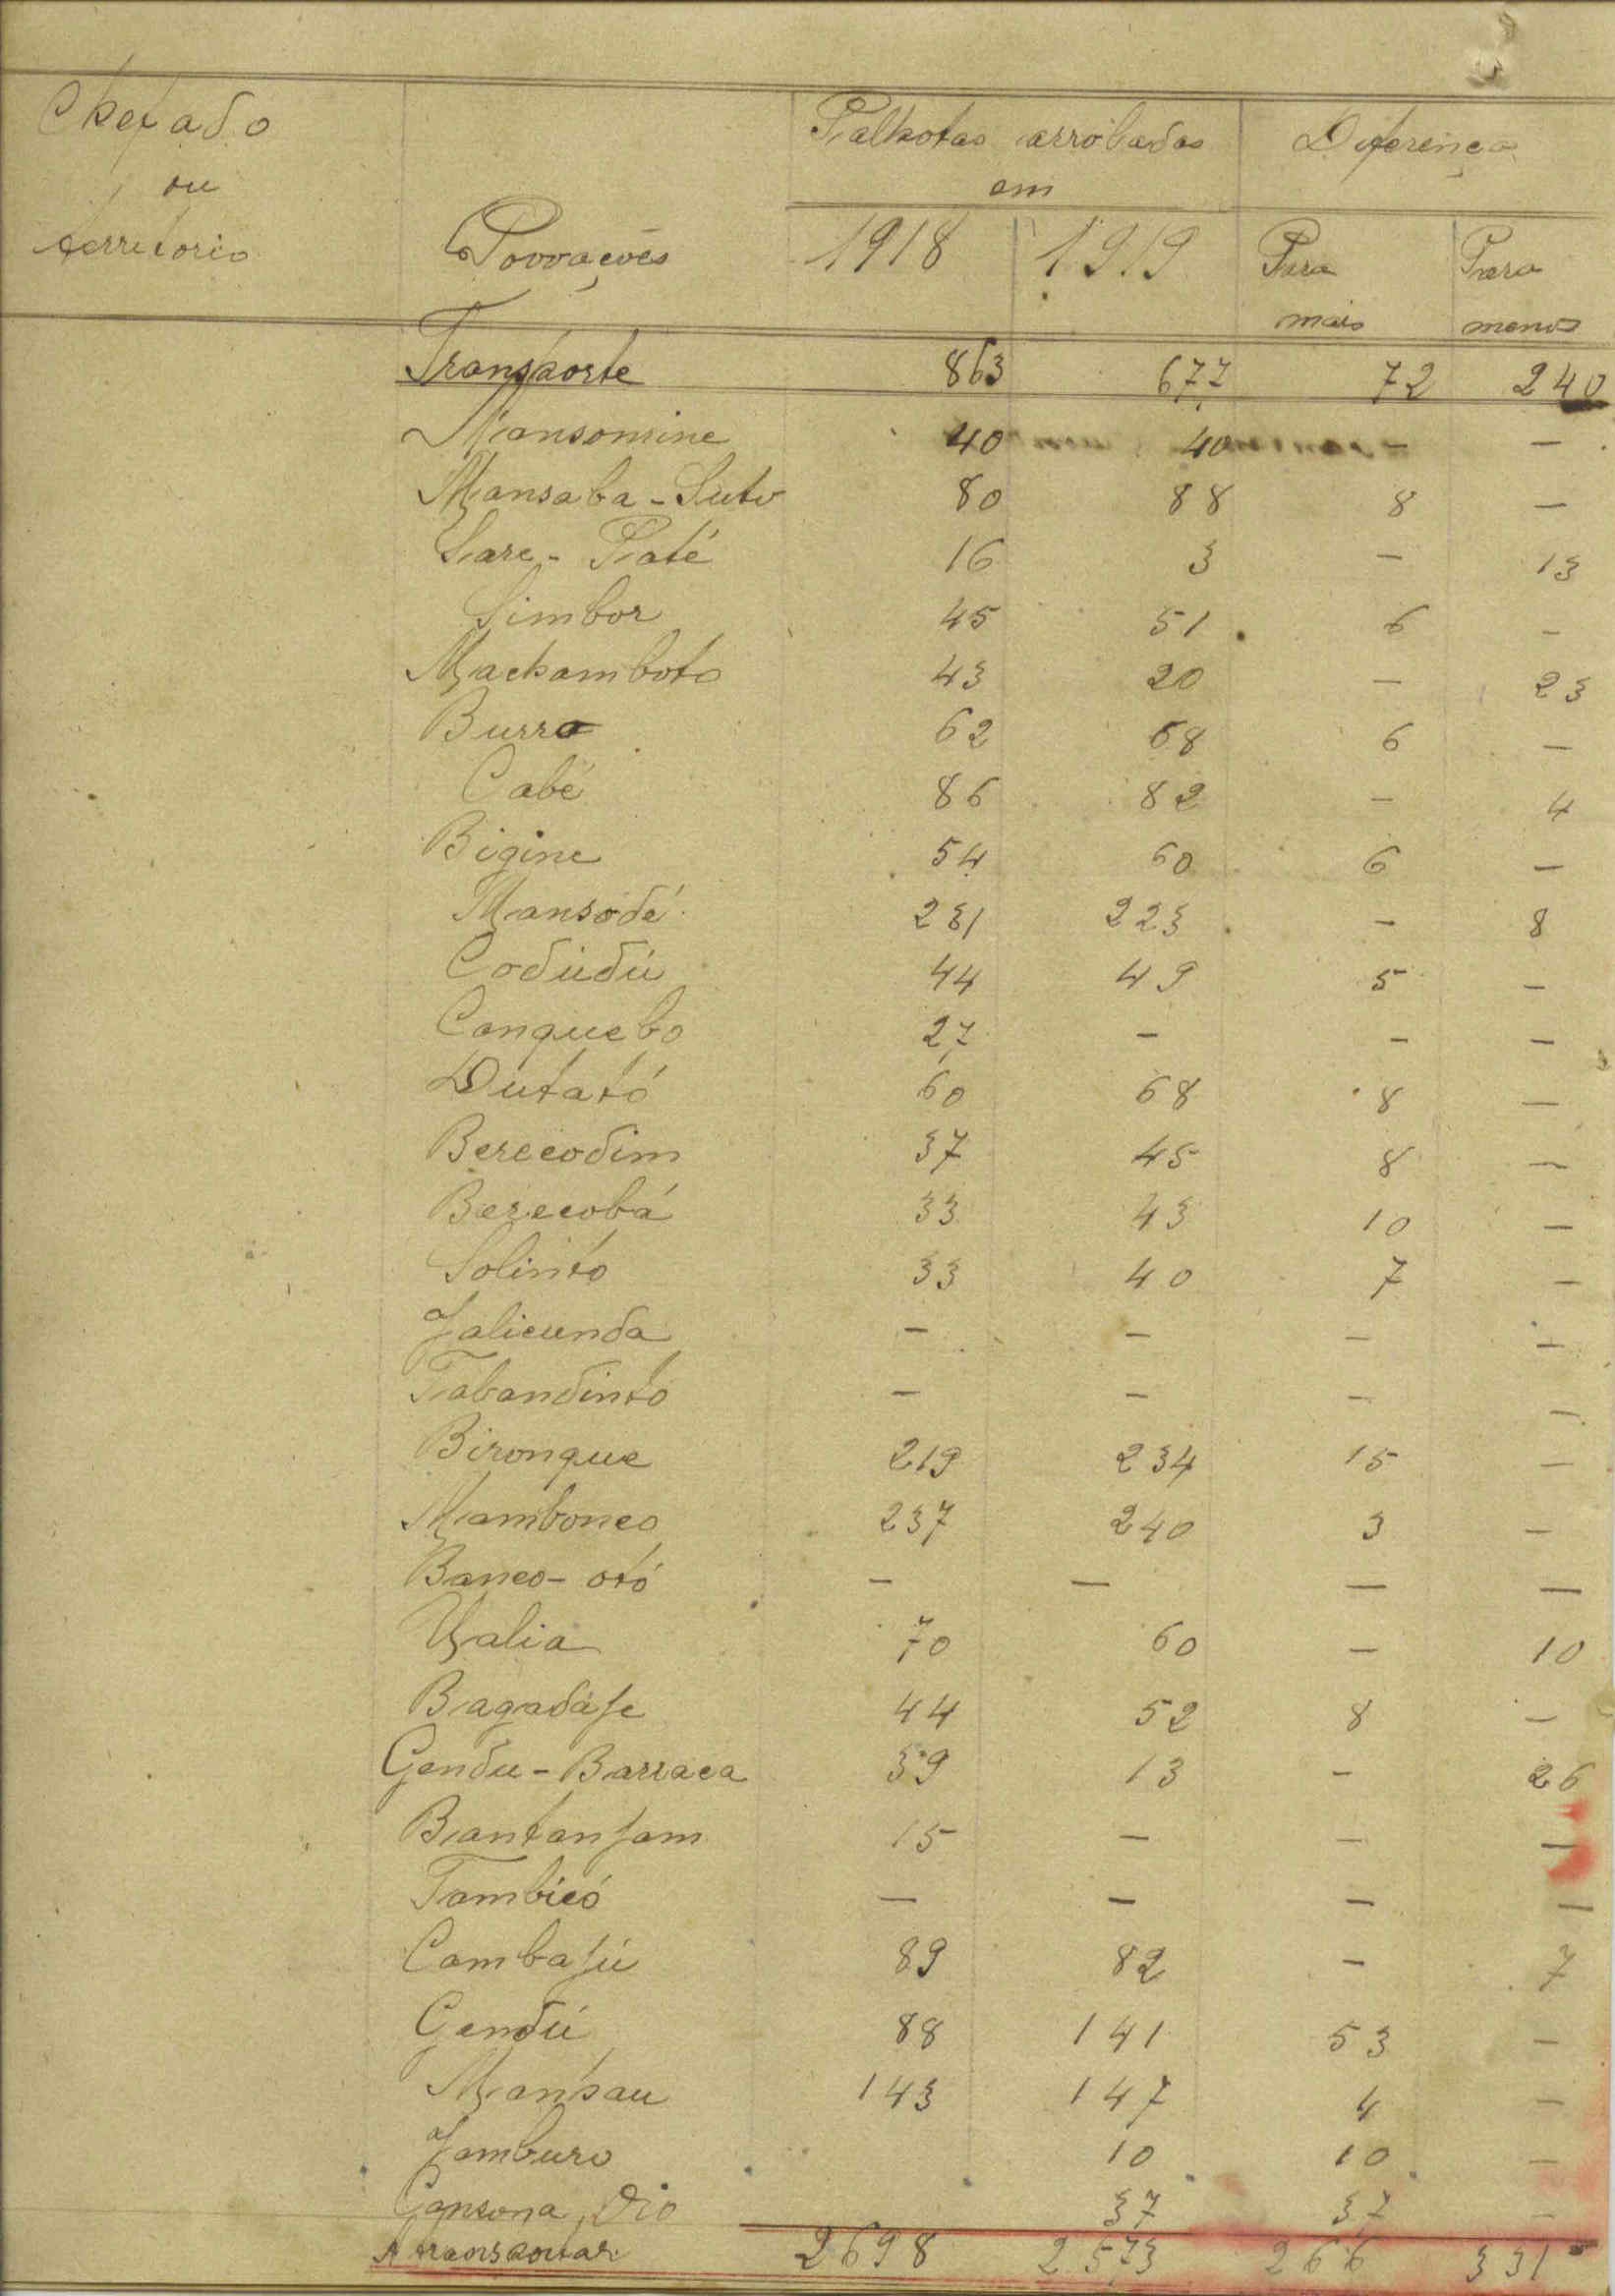 Chefado
ou
territorio
Povoações
Palhotas arroladas
em
1918 1919
Diferença
Para
mais
Para
menos
Transporte 863 677 72 240
Mansomine 40 40 - -
Mansaba-Suto 80 88 8 -
Sare-Paté 16 3 - 13
Simbor 45 51 6 -
Machamboto 43 20 - 23
Burro 62 68 6 -
Cabé 86 82 - 4
Bigine 54 60 6 -
Mansodé 231 223 - 8
Codúdú 44 49 5 -
Canquebo 27 - - -
Dutató 60 68 8 -
Berecodim 37 45 8 -
Berecobá 33 43 10 -
Solinto 33 40 7 -
Jalicunda - - - -
Tabandinto - - - -
Bironque 219 234 15 -
Mambonco 237 240 3 -
Banco-otó - - - -
Ualia 70 60 - 10
Bagadáje 44 52 8 -
Gendu-Barraca 39 13 - 26
Bantanjam 15 - - -
Tambicó - - - -
Cambajú 89 82 - 7
Gendú 88 141 53 -
Mansau 143 147 4 -
Jamburo 10 10 -
Cansona Dio 37 37 -
A transportar 2698 2573 266 331